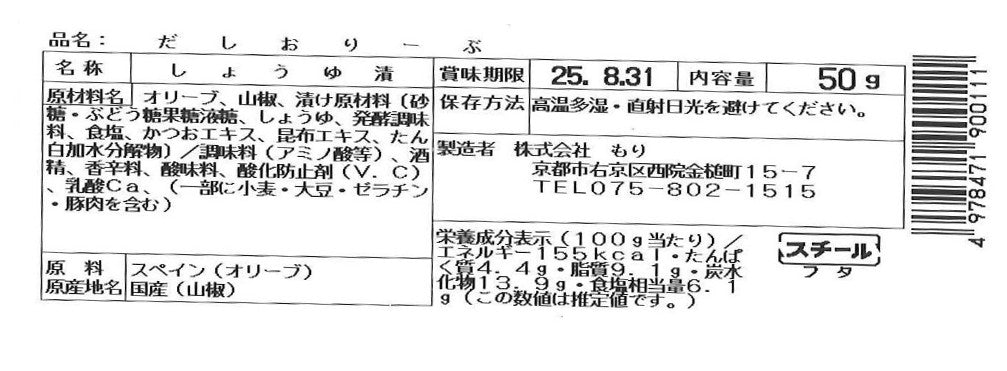 品名： だしおりーぶ
名称 しょうゆ漬
原材料名 オリーブ、山椒、漬け原材料〔砂
糖・ぶどう糖果糖液糖、しょうゆ、発酵調味
料、食塩、かつおエキス、昆布エキス、たん
白加水分解物〕／調味料（アミノ酸等）、酒
精、香辛料、酸味料、酸化防止剤（Ｖ．Ｃ）
、乳酸Ｃａ、（一部に小麦・大豆・ゼラチン
・豚肉を含む）
原料 スペイン（オリーブ）
原産地名 国産（山椒）
賞味期限 25. 8.31 内容量 50g
保存方法 高温多湿・直射日光を避けてください。
製造者 株式会社 もり
京都市右京区西院金槌町１５－７
ＴＥＬ０７５－８０２－１５１５
栄養成分表示（１００ｇ当たり）／
エネルギー１５５ｋｃａｌ・たんぱ
く質４．４ｇ・脂質９．１ｇ・炭水
化物１３．９ｇ・食塩相当量６．１
ｇ（この数値は推定値です。）
スチール
フタ
4 978471 900111